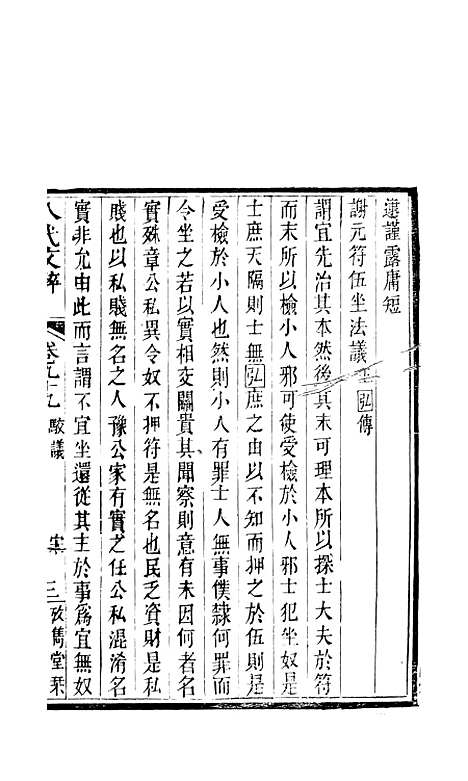 遑謹露庸短
謝元符伍坐法議王弘傳
謂宜先治其本然後其末可理本所以探士大夫於符
而末所以檢小人邪可使受檢於小人邪士犯坐奴是
士庶天隔則士無弘庶之由以不知而押之於伍則是
受檢於小人也然則小人有罪士人無事僕隸何罪而
令坐之若以實相交關貴其聞察則意有未因何者名
實殊章公私異令奴不押符是無名也民乏資財是私
賤也以私賤無名之人豫公家有實之任公私混淆名
實非允由此而言謂不宜坐還從其主於事爲宜無奴
八代文粹 卷九十九 駮議 三 攷雋堂栞